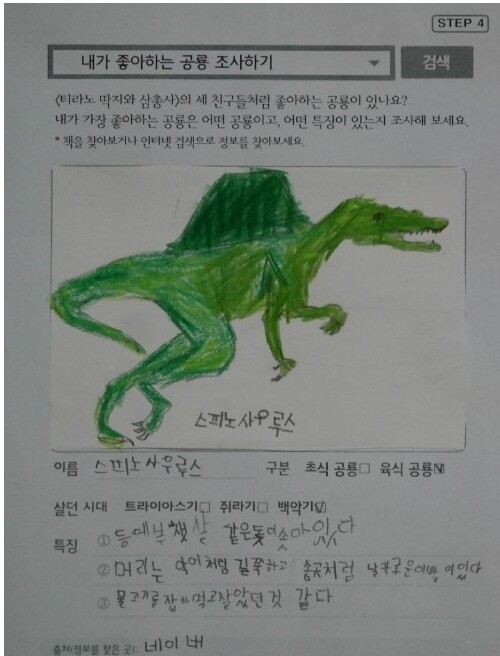 STEP 4
내가 좋아하는 공룡 조사하기
검색
<티라노 딱지와 삼총사>의 세 친구들처럼 좋아하는 공룡이 있나요?
내가 가장 좋아하는 공룡은 어떤 공룡이고, 어떤 특징이 있는지 조사해 보세요.
* 책을 찾아보거나 인터넷 검색으로 정보를 찾아보세요.
스피노사우루스
이름 스피노사우루스 구분 초식 공룡□ 육식 공룡☑
살던 시대 트라이아스기□ 쥐라기□ 백악기☑
특징 ① 등에 부챗살 같은 돛이 솟아있다
② 머리는 악어처럼 길쭉하고 송곳처럼 날카로운 이빨이 있다
③ 물고기를 잡아먹고 살았던 것 같다
출처(정보를 찾은 곳): 네이버